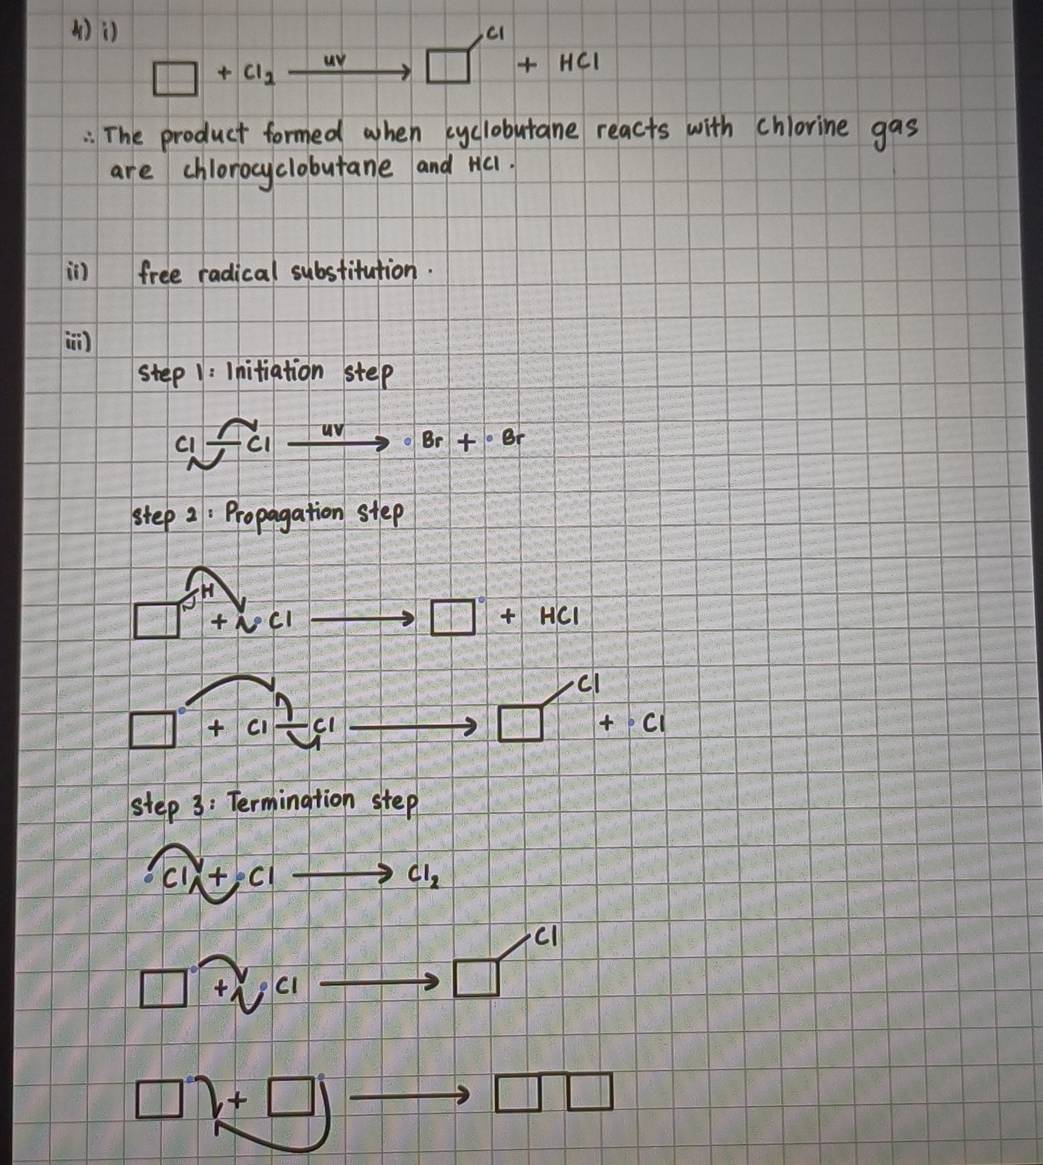 4) i)
+ Cl₂ uv Cl + HCl
∴ The product formed when cyclobutane reacts with chlorine gas
are chlorocyclobutane and HCl.
ii) free radical substitution.
iii)
Step 1: Initiation step
Cl Cl uv •Br + •Br
Step 2: Propagation step
H + •Cl • + HCl
• + Cl Cl Cl + •Cl
Step 3: Termination step
•Cl + •Cl Cl₂
• + •Cl Cl
• + •